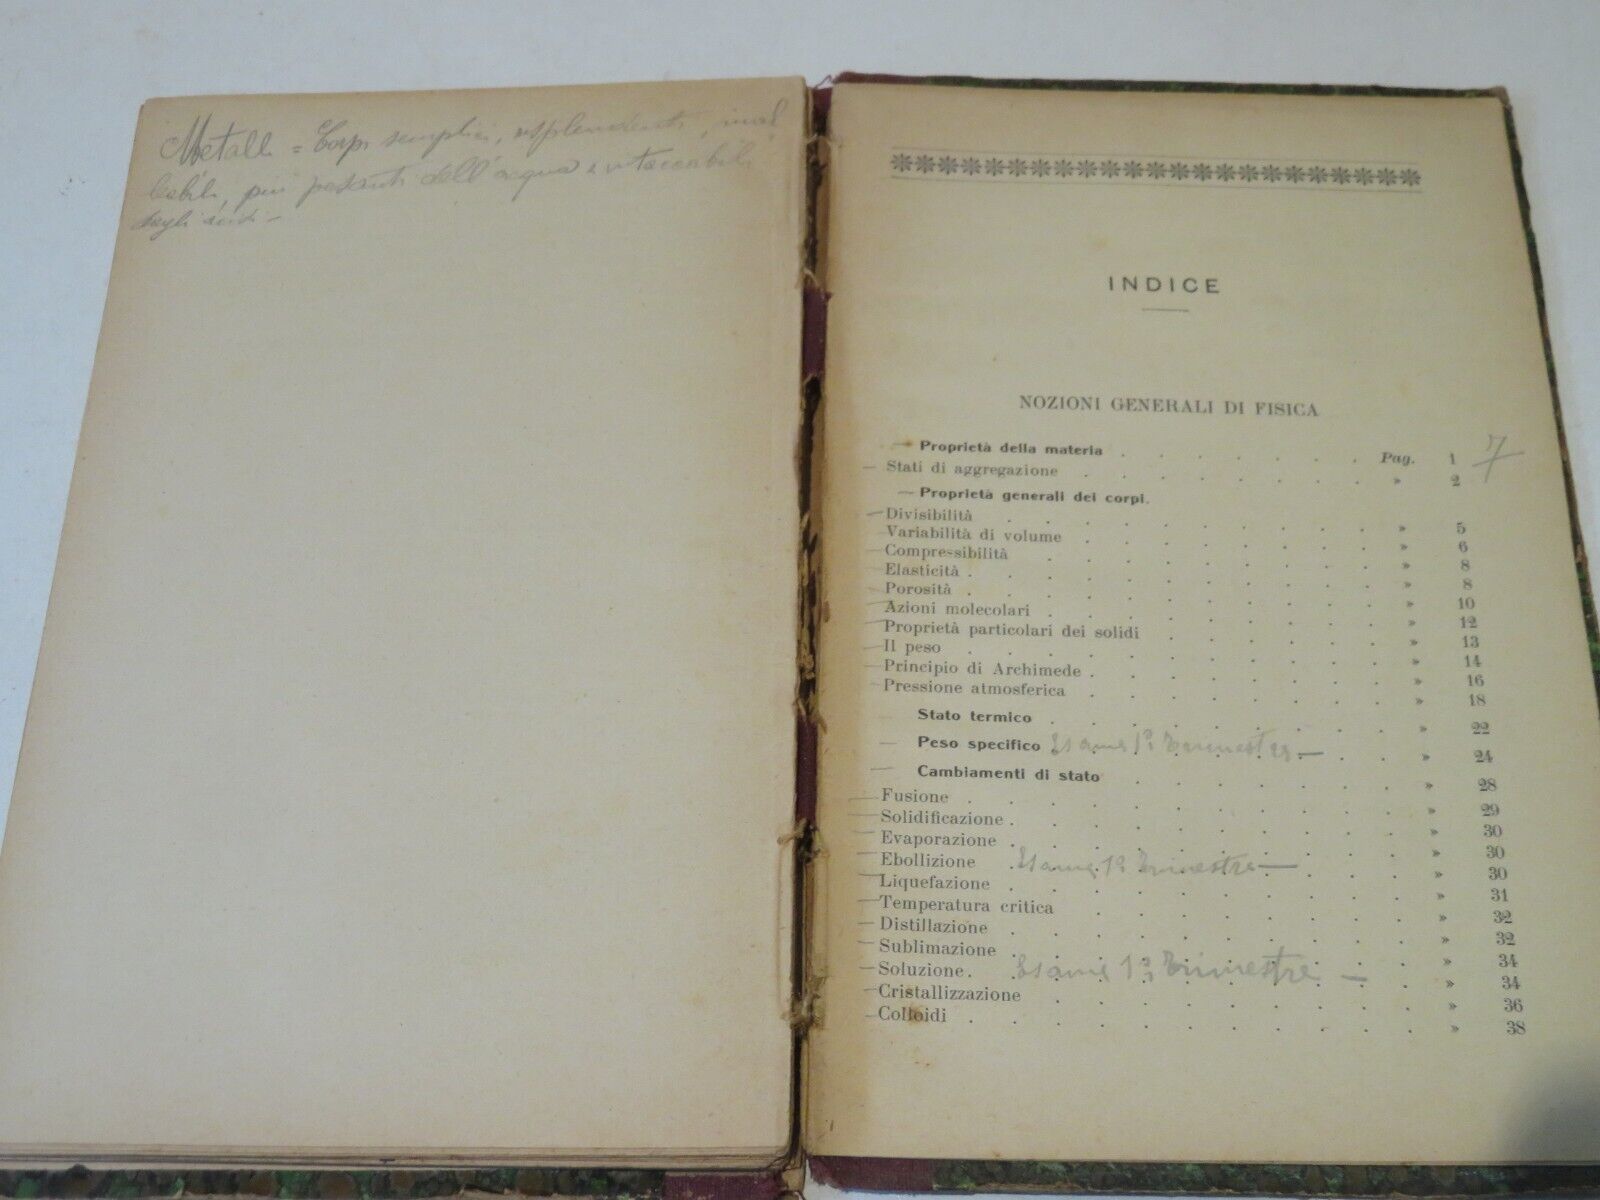 Metalli = Corpi semplici, risplendenti, mal
leabili, più pesanti dell'acqua e
dagli acidi -
INDICE
NOZIONI GENERALI DI FISICA
— Proprietà della materia . . . . . . . Pag. 1 7
— Stati di aggregazione . . . . . . . . » 2
— Proprietà generali dei corpi.
— Divisibilità . . . . . . . . . . » 5
— Variabilità di volume . . . . . . . . » 6
— Compressibilità . . . . . . . . . » 8
— Elasticità . . . . . . . . . . » 8
— Porosità . . . . . . . . . . » 10
— Azioni molecolari . . . . . . . . . » 12
— Proprietà particolari dei solidi . . . . . . » 13
— Il peso . . . . . . . . . . » 14
— Principio di Archimede . . . . . . . . » 16
— Pressione atmosferica . . . . . . . . » 18
Stato termico . . . . . . . . . » 22
— Peso specifico Esame 1° Trimestre — . . » 24
— Cambiamenti di stato . . . . . . . » 28
— Fusione . . . . . . . . . . » 29
— Solidificazione . . . . . . . . . » 30
— Evaporazione . . . . . . . . . » 30
— Ebollizione . Esame 1° Trimestre — . . . » 30
— Liquefazione . . . . . . . . . » 31
— Temperatura critica . . . . . . . . » 32
— Distillazione . . . . . . . . . » 32
— Sublimazione . . . . . . . . . » 34
— Soluzione. . Esame 1° Trimestre — . . » 34
— Cristallizzazione . . . . . . . . . » 36
— Colloidi . . . . . . . . . . » 38